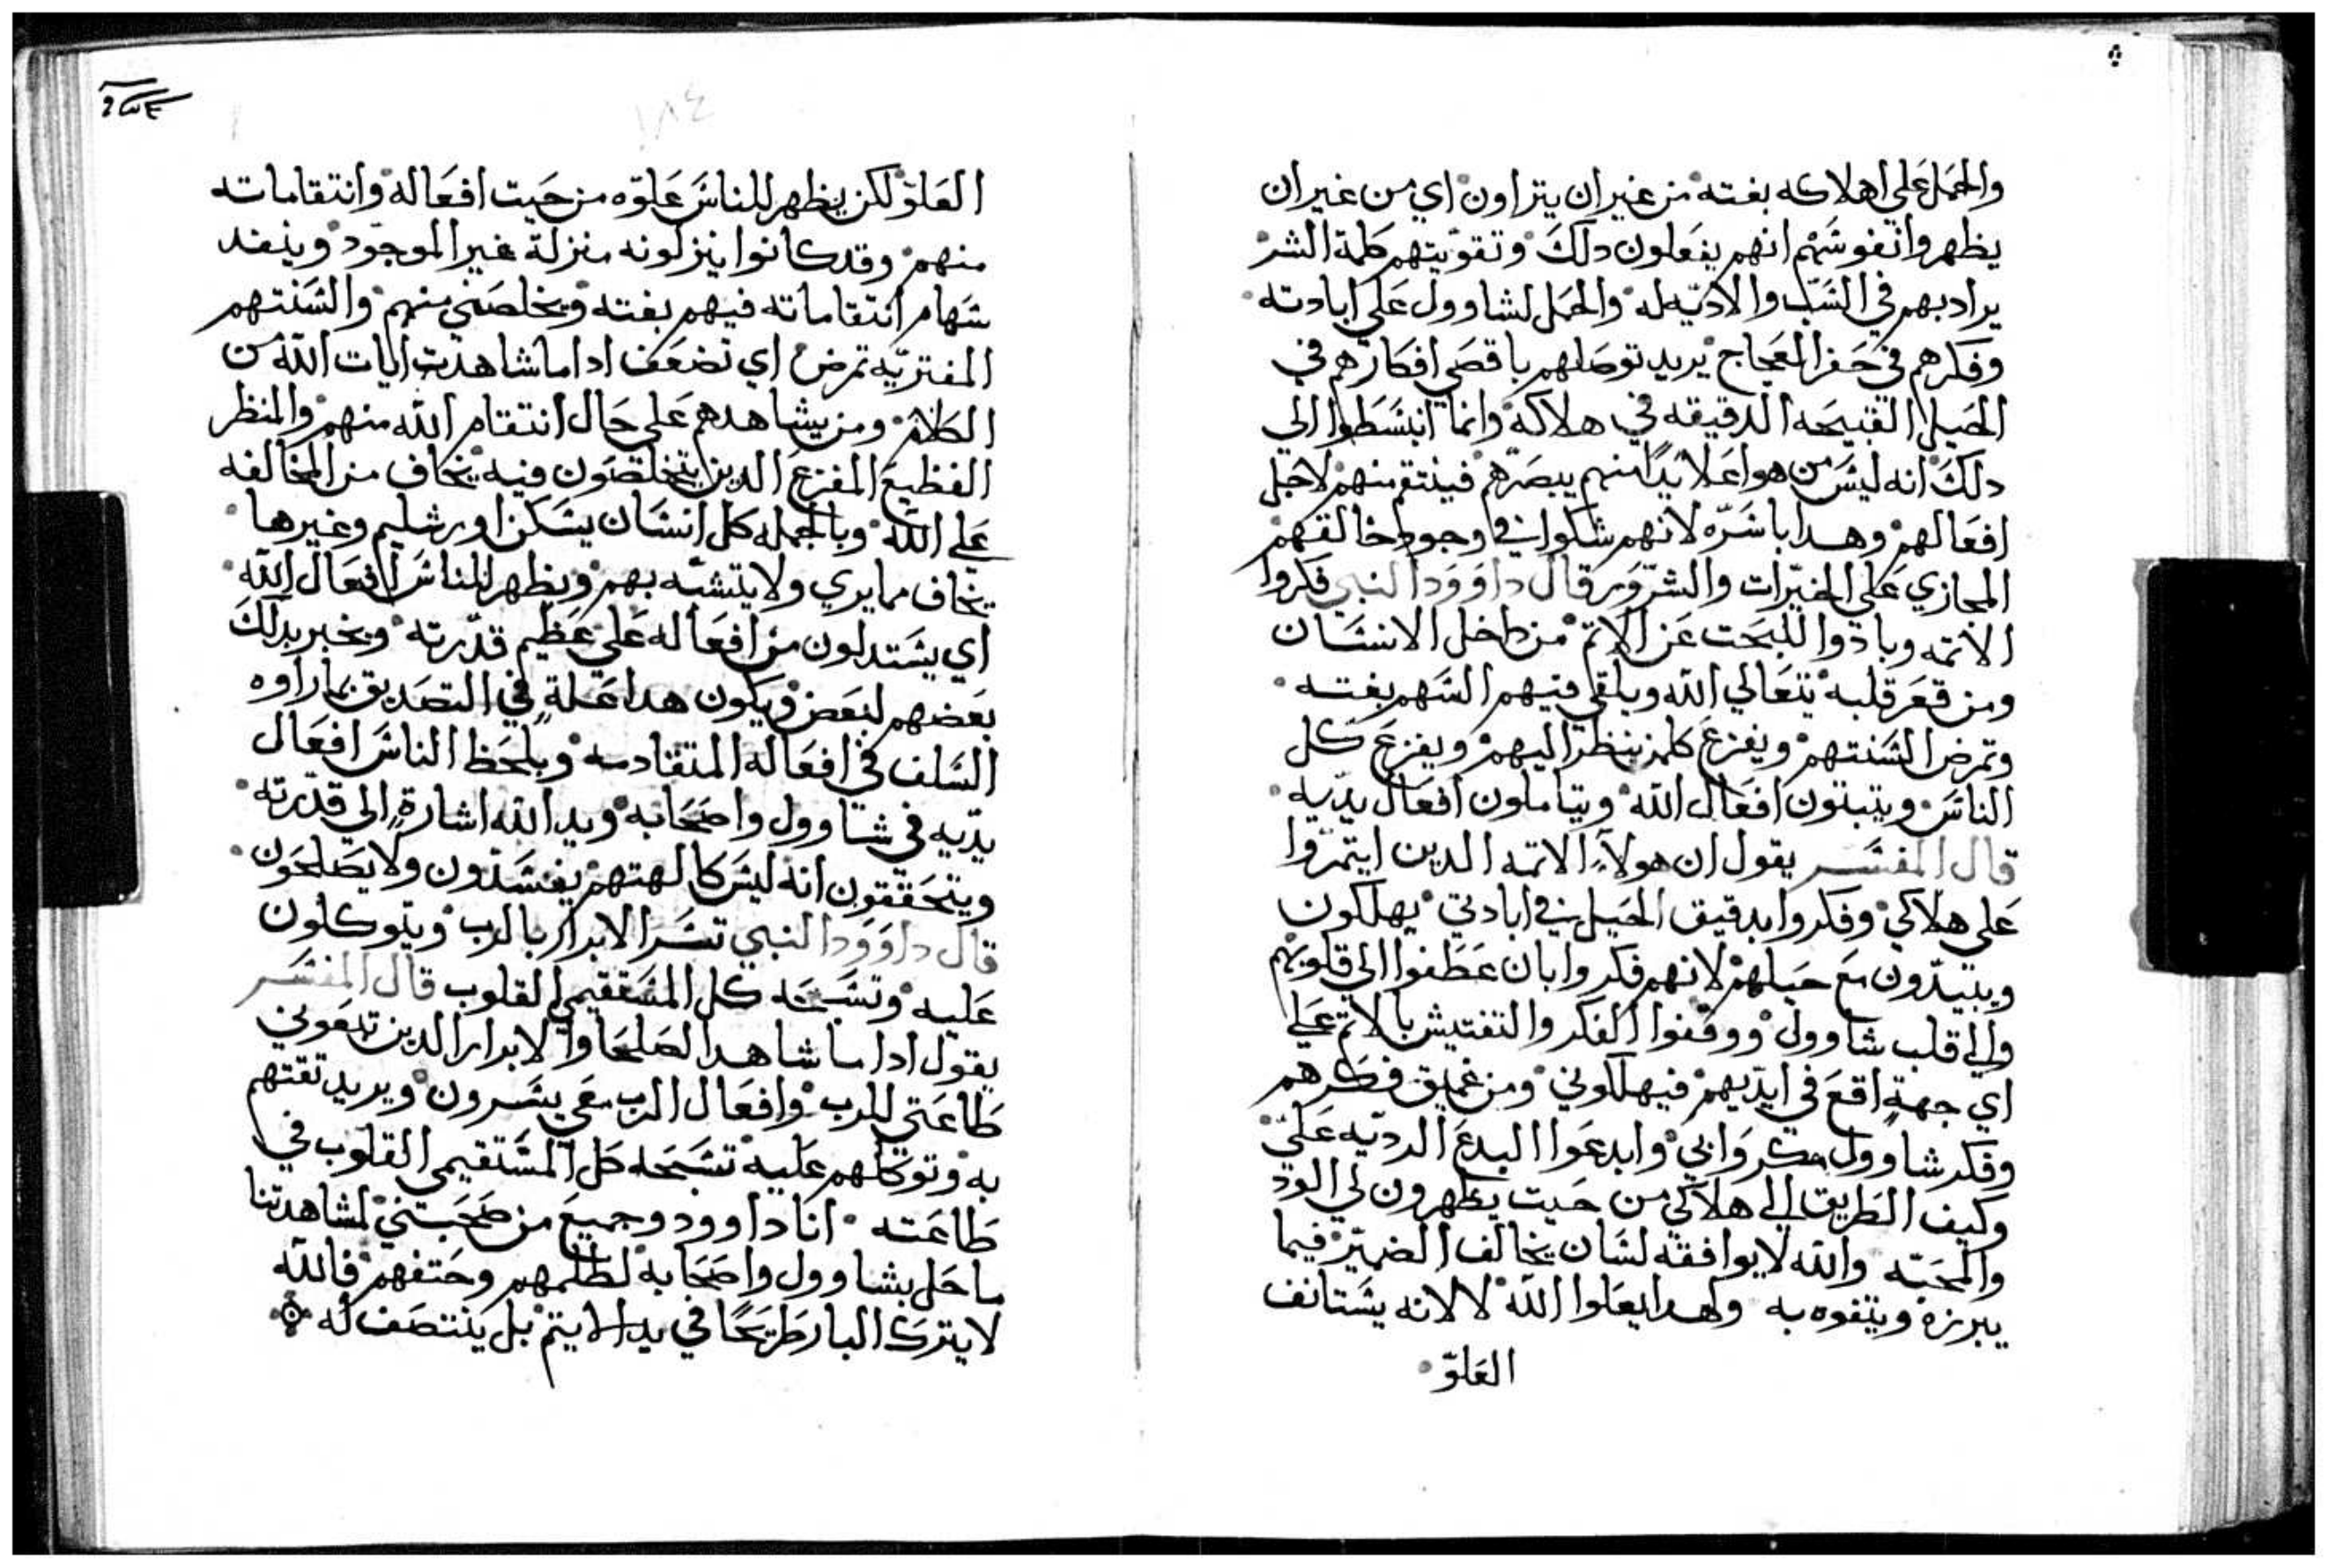 والحمل على اهلاكه بغته من غير ان يتراون اي من غير ان
يظهروا نفوسهم انهم يفعلون دلك وتقويتهم كلمة الشر
يراد بهم في السب والاديه له والحمل لشاوول على ابادته
وفكرهم في حفر المعجاج يريد توصلهم باقصى افكارهم في
الحيل القبيحه الدقيقه في هلاكه وانما انبسطوا الى
دلك انه ليس من هو اعلا يدا منهم يبصرهم فينتقم منهم لاجل
افعالهم وهدا باسره لانهم شكوا في وجود خالقهم
المجازي على الخيرات والشرور قال داوود النبي فكروا
الاتمه وبادوا للبحت عن الاتم من داخل الانسان
ومن قعر قلبه يتعالى الله ويلقى فيهم السهم بغته
وتمرض السنتهم ويفزع كلمن ينظر اليهم ويفزع كل
الناس ويتبتون افعال الله ويتاملون افعال يديه
قال المفسر يقول ان هولاء الاتمه الدين ايتمروا
على هلاكي وفكروا بدقيق الحيل في ابادتي يهلكون
ويبيدون مع حيلهم لانهم فكروا بان عطفوا الى قلوبهم
والى قلب شاوول ووقفوا الفكر والتفتيش بالاتم على
اي جهة اقع في ايديهم فيهلكوني ومن عميق فكرهم
وفكر شاوول مكروا بي وابدعوا البدع الرديه علي
وكيف الطريق الى هلاكي من حيت يظهرون لي الود
والمحبه والله لا يوافقه لسان يخالف الضمير فيما
يبرزه ويتفوه به ولهدا يعلوا الله لا لانه يستانف
العلو
١٨٤
العلو لكن يظهر للناس علوه من حيت افعاله وانتقاماته
منهم وقد كانوا ينزلونه منزلة غير الموجود وينفد
سهام انتقاماته فيهم بغته ويخلصني منهم والسنتهم
المفتريه تمرض اي تضعف اداما شاهدت ايات الله من
الكلام ومن يشاهدهم على حال انتقام الله منهم والمنظر
الفظيع المفزع الدين يتخلصون فيه يخاف من المخالفه
على الله وبالجمله كل انسان يسكن اورشليم وغيرها
يخاف مما يرى ولا يتشبه بهم ويظهر للناس افعال الله
اي يستدلون من افعاله على عظيم قدرته ويخبر بدلك
بعضهم لبعض ويكون هدا علة في التصديق بما راوه
السلف في افعاله المتقادمه ويلحظ الناس افعال
يديه في شاوول واصحابه ويد الله اشارة الى قدرته
ويتحققون انه ليس كالهتهم يفسدون ولا يصلحون
قال داوود النبي تسر الابرار بالرب ويتوكلون
عليه وتسبحه كل المستقيمي القلوب قال المفسر
يقول اداما شاهد الصلحا والابرار الدين تبعوني
طاعتي للرب وافعال الرب معي يسرون ويريد تقتهم
به وتوكلهم عليه تسبحه كل المستقيمي القلوب في
طاعته انا داوود وجميع من صحبتني لمشاهدتنا
ما حل بشاوول واصحابه لظلمهم وحتفهم فالله
لا يترك البار طريحا في يد الايتم بل ينتصف له